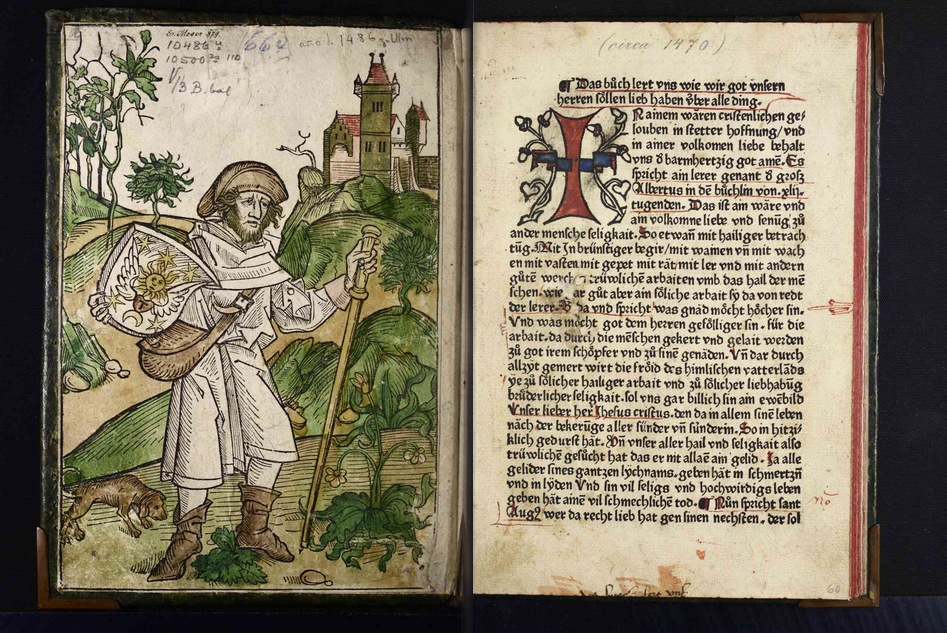 10486
664 año 1486 zu Ulm
10500
B. bal
(circa 1470)
¶ Das bůch lert vns wie wir got vnsern
herren söllen lieb haben vber alle ding.
IN ainem wâren cristenlichen ge⸗
louben in stetter hoffnung/vnd
in ainer volkomen liebe behalt
vns d̕ barmhertzig got amē. Es
spricht ain lerer genant d̕ groſz
Albertus in dē bůchlin von
tugenden. Das ist ain wâre vnd
ain volkomne liebe vnd
ander mensche seligkait. So etwañ mit hailiger betrach
tůg. Mit Inbrünstiger begir/mit wainen vñ mit wach
en mit vasten mit gepet mit rât mit ler vnd mit andern
gůtē trüwlichē arbaiten vmb das hail der mē
schen. wie gůt aber ain söliche arbait sy da von redt
der lerer. da vnd spricht was gnad möcht höcher sin.
Vnd was möcht got dem herren gefölliger sin. für die
arbait. da durch die mēschen gekert vnd gelait werden
zů got irem schöpfer vnd zů sinē genâden. Vñ dar durch
allzyt gemert wirt die frôid des himlischen vatterlāds
ye zů sölicher hailiger arbait vnd zů sölicher liebhabūg
brůderlicher seligkait. sol vns gar billich sin ain ewēbild
Vnser lieber her Jhesus cristus. den da in allem sinē leben
nâch der bekerūge aller sünder vñ sünderin. So in hitzi⸗
klich gedurst hât. Vñ vnser aller hail vnd seligkait also
trüwlichē gesůcht hat das er nit allaē ain gelid. Ja alle
gelider sines gantzen lychnams. geben hât in schmertzñ
vnd in lyden Vnd sin vil seligs vnd hochwirdigs leben
geben hât ainē vil schmechlichē tod. ¶ Nůn spricht sant
Augꝰ wer da recht lieb hat gen sinen nechsten. der sol
no
60